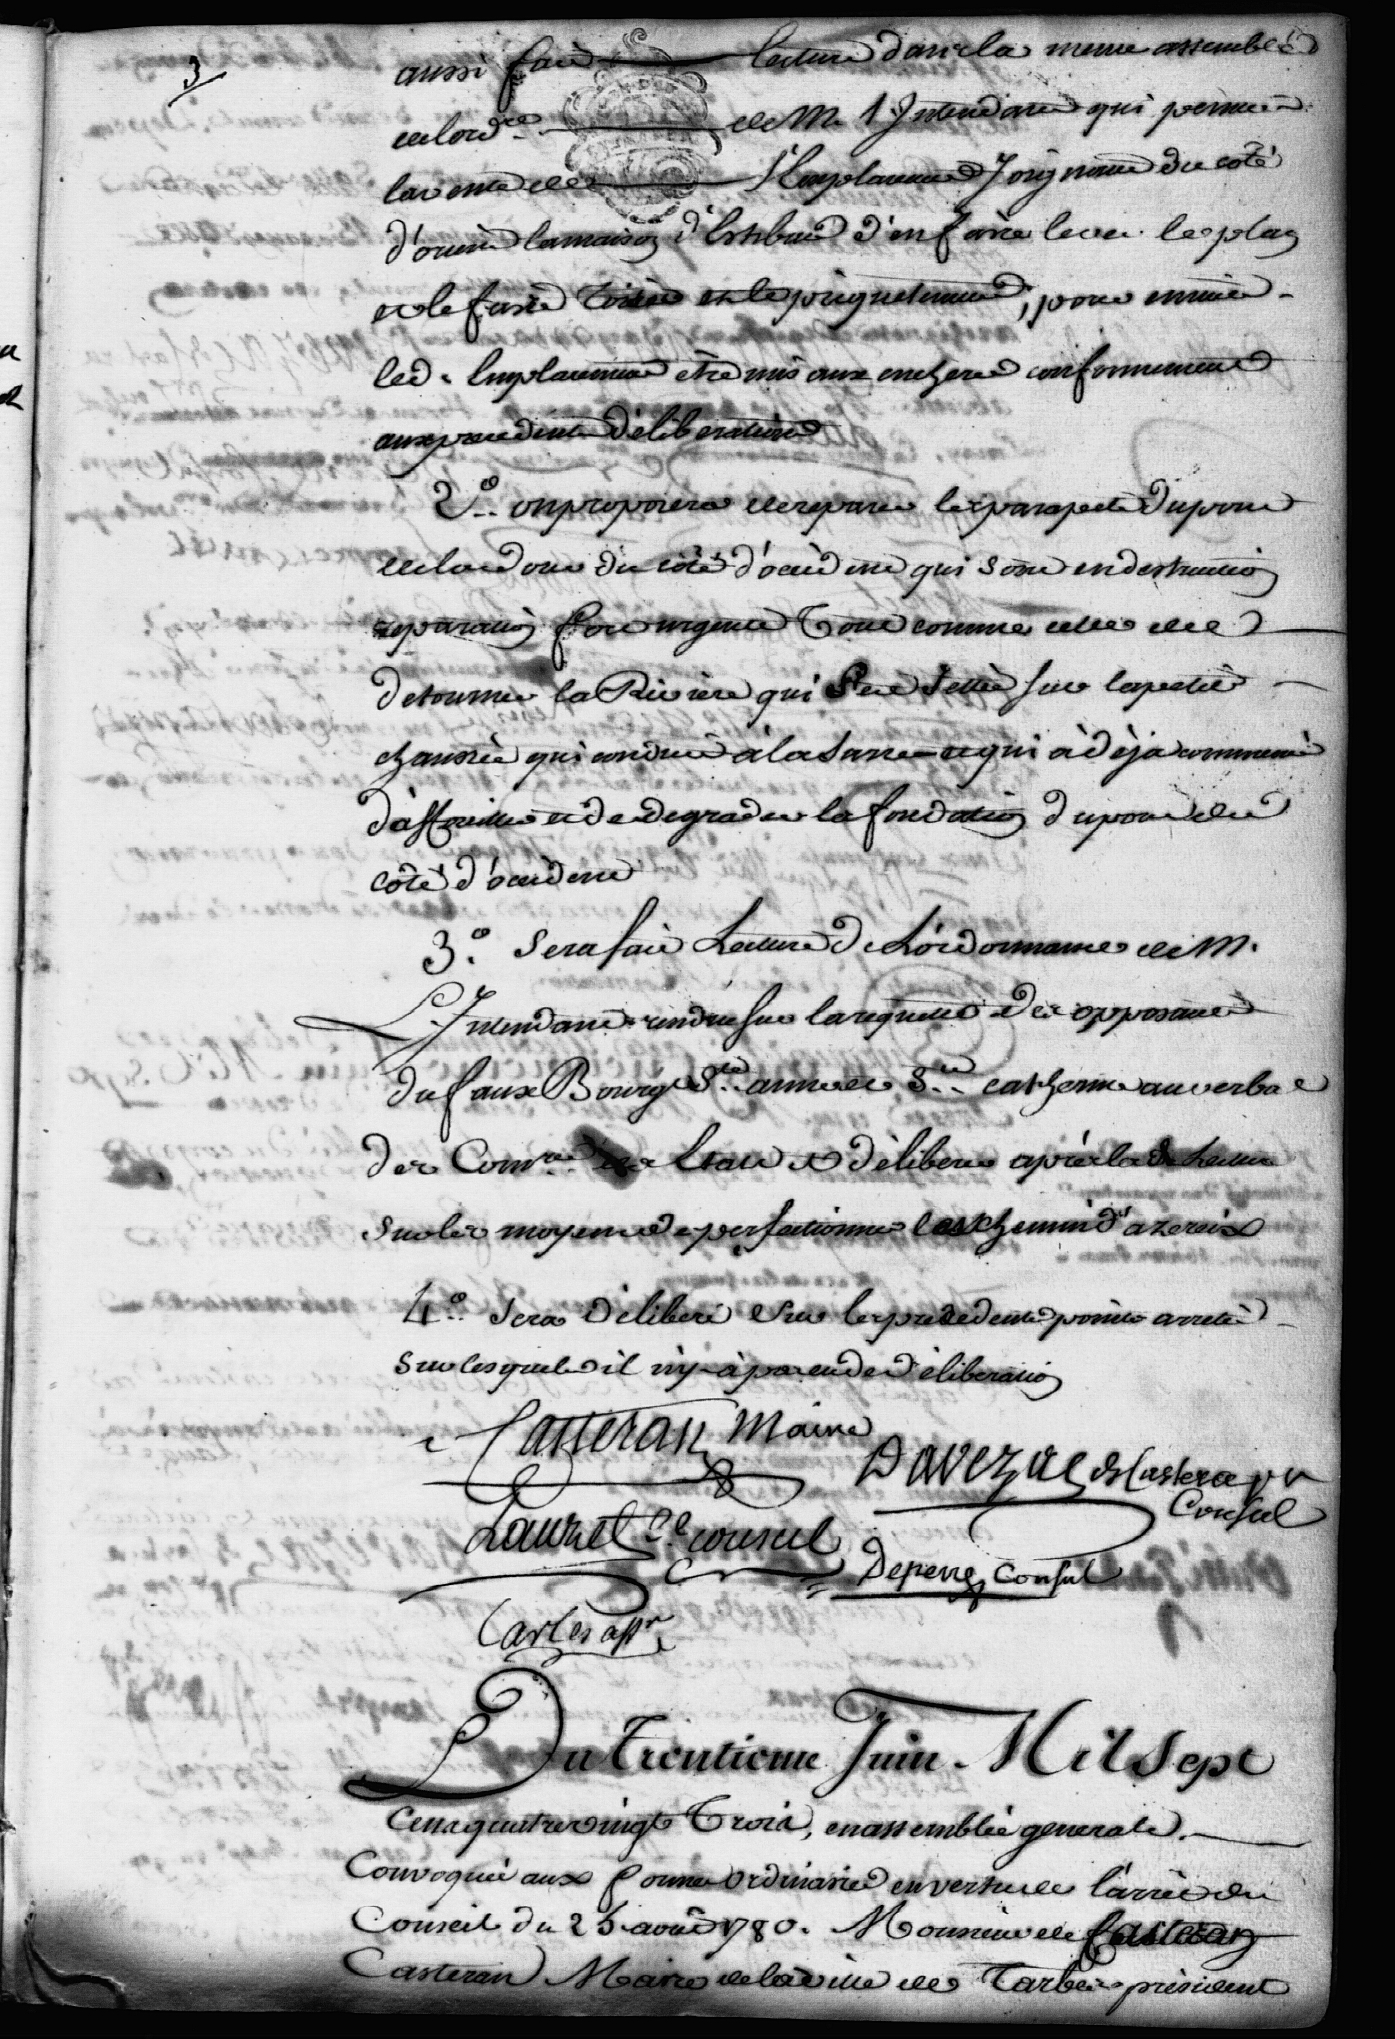 3
aussi fait lecture dans la meme assemblée
de lord.ce de M. l'Intendant qui permet
la vente de l'Emplacement joignant du côté
d'orient la maison d'Estibaut d'en faire lever le plan
et le faire toiser et le piquetement, pour ensuite
led. Emplacement être mis aux encheres conformement
aux precedentes déliberations
2.° on proposera de reparer les parapets du pont
de Ladour du côté d'occident qui sont en destruction
reparation fort urgente tout comme celle de
detourner la Riviere qui s'est jettée sur la petite
chaussée qui conduit à la Sarre et qui à déja commencé
d'affouiller et de degrader la fondation du pont du
côté d'occident
3.° Sera fait Lecture de L'ordonnance de M.
L'Intendant rendue sur la requette des opposants
du faux Bourg Ste anne et Ste catherine au verbal
des Comres et deliberer aprés lad. Lecture
sur les moyens de perfectionner les chemin d'azereix
4.° Sera déliberé sur les precedents points arretés
sur lesquels il n'y a pas eu de déliberation
Casteran Maire
Davezac de Castera pr
Consul
Lauzet 2.e consul
Depeyre Consul
Carles assr
Du Trentieme Juin Mil Sept
Cens quatre vingt Trois, en assemblée generale
Convoquée aux formes ordinaires en vertu de l'arrêt du
Conseil du 25 août 1780. Monsieur de Casteran
Casteran Maire de la ville de Tarbes president